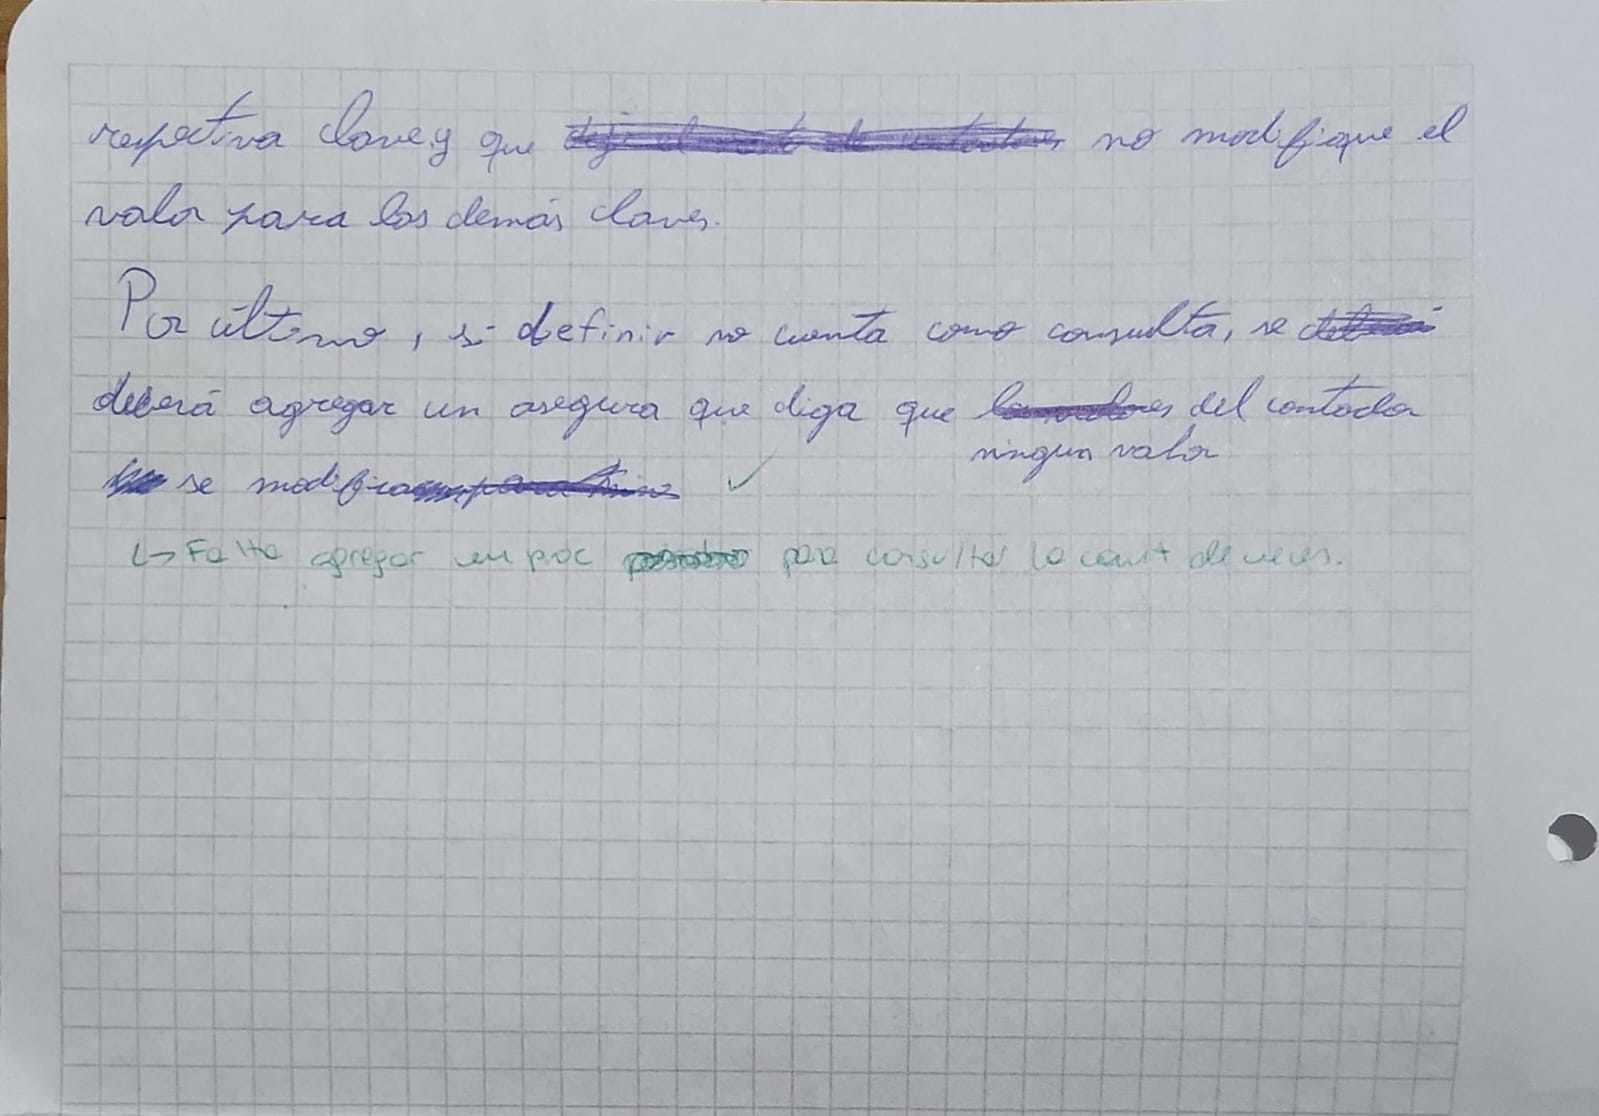 respectiva clave y que no modifique el
valor para las demás claves.
Por último, si definir no cuenta como consulta, se
deberá agregar un asegura que diga que del contador
ningun valor
se modifica
↳ Falta agregar un proc para consultar la cant de veces.